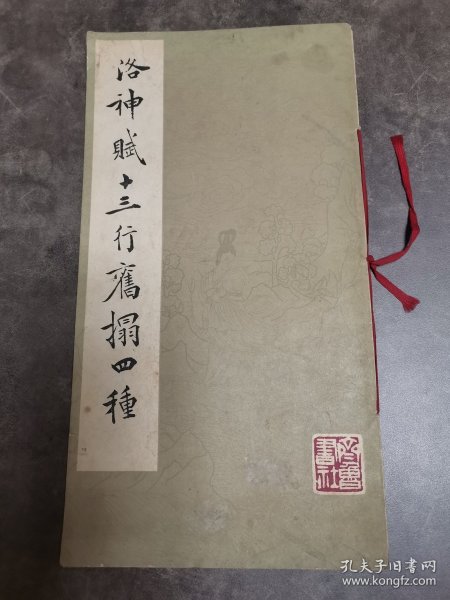 洛神賦十三行舊搨四種
齊魯
書社
孔夫子旧书网
www.kongfz.com